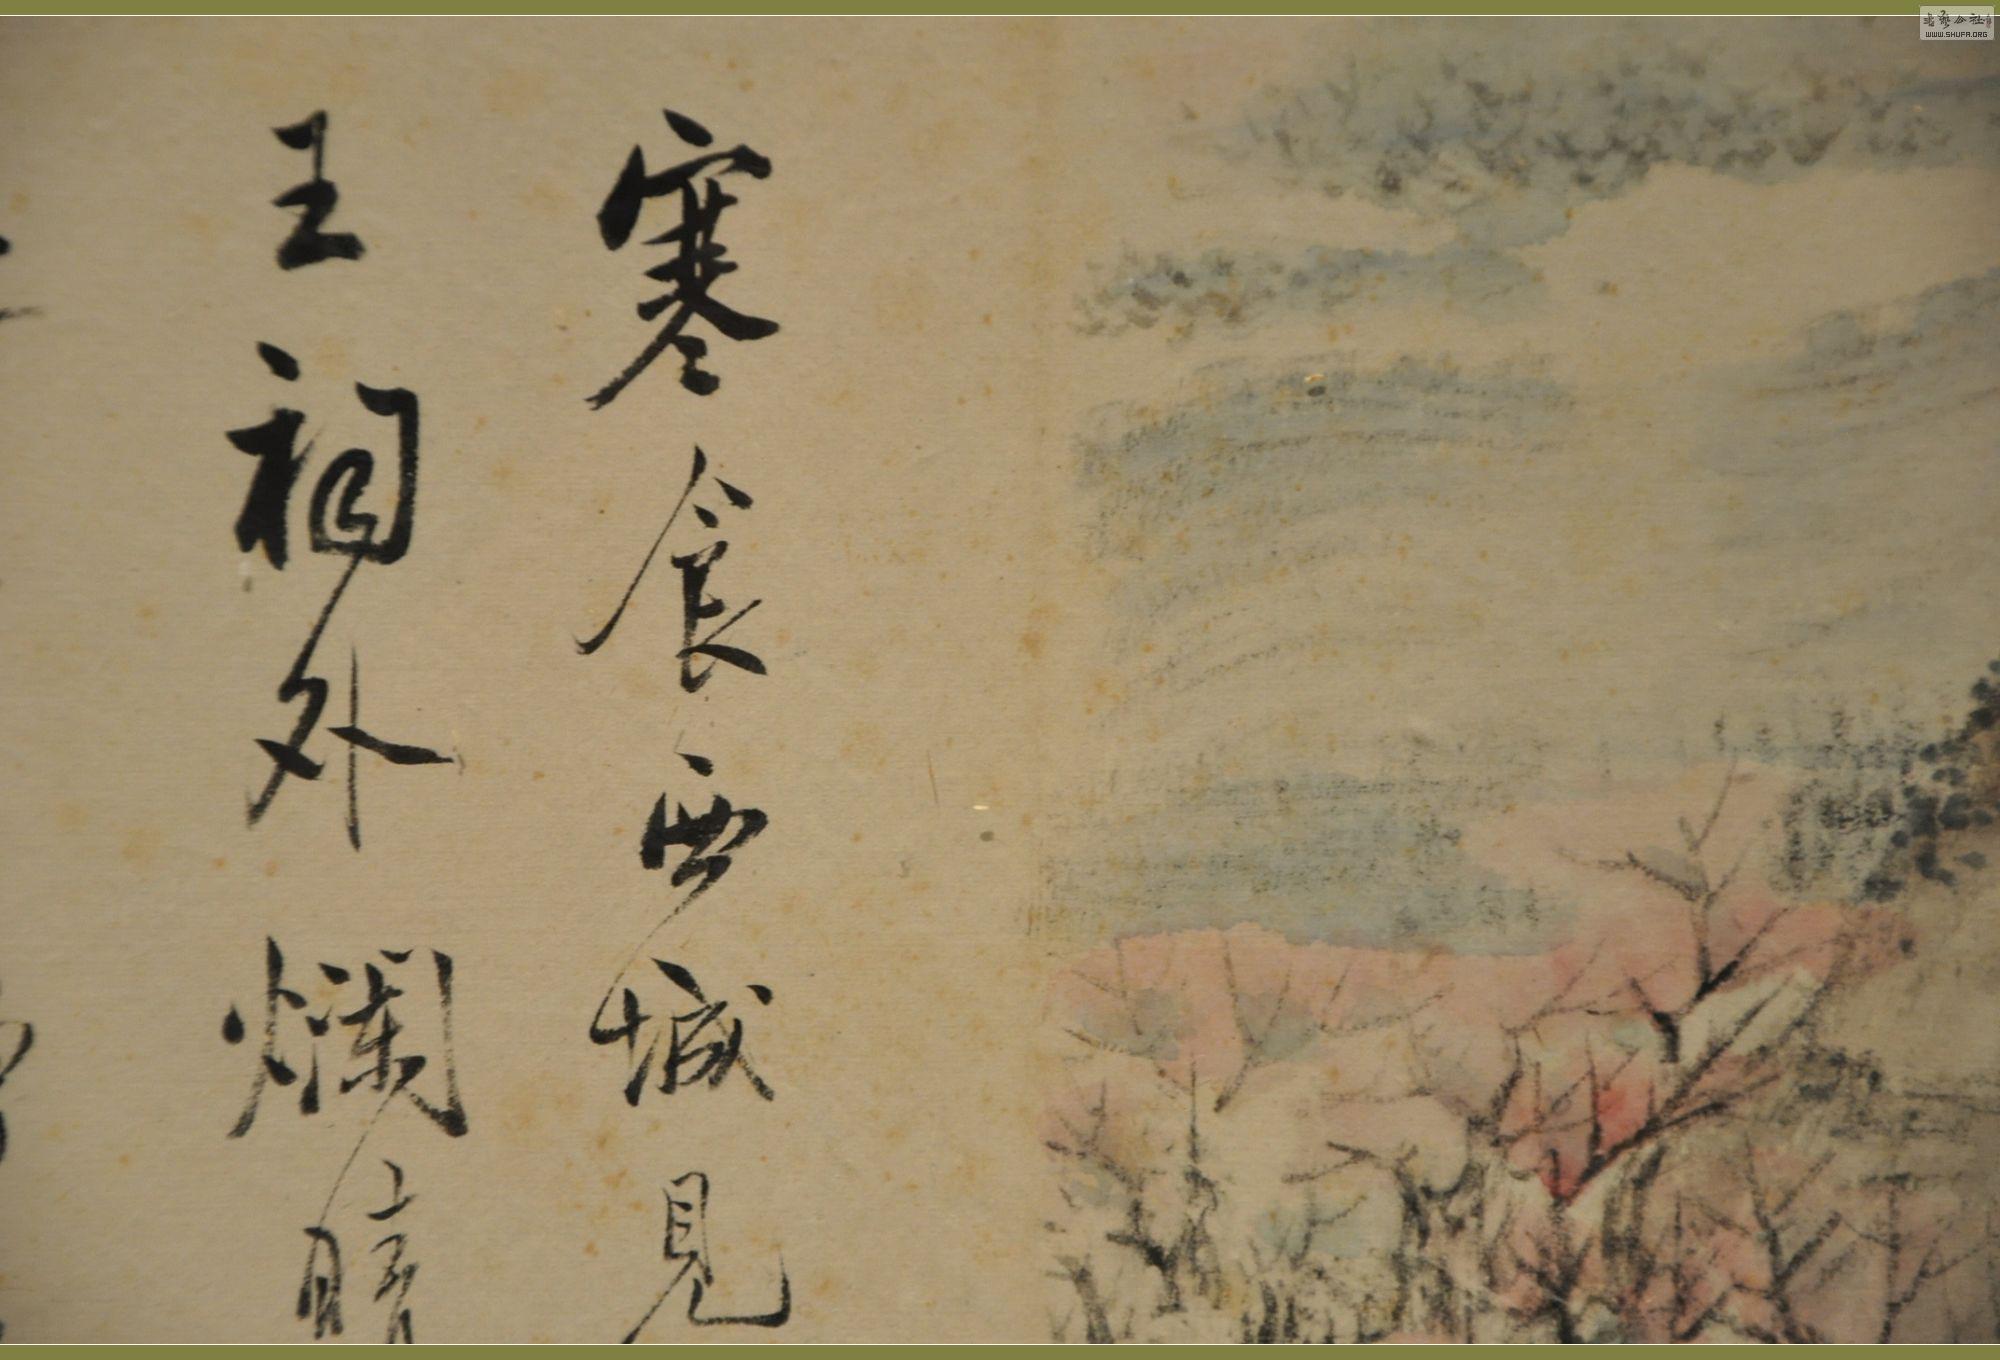 寒食西城見
王祠外爛晴
书艺公社
WWW.SHUFA.ORG